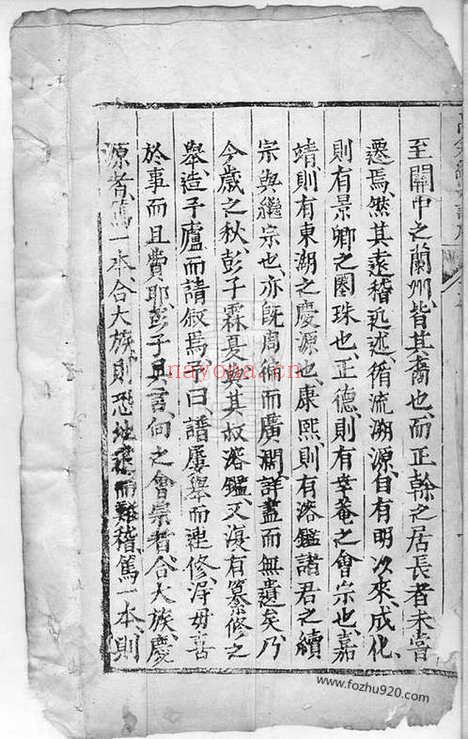 至關中之蘭州皆其裔也而正幹之居長者未嘗
遷焉然其遠稽近述循流溯源自有明以來成化
則有景卿之圈珠也正德則有幸菴之會宗也嘉
靖則有東湖之慶源也康熙則有溶鑑諸君之續
宗與繼宗也亦既周偹而廣濶詳盡而無遺矣乃
今歲之秋彭子霖夏與其叔溶鑑又復有纂修之
舉造予廬而請敘焉予曰譜屢舉而連修得毋喜
於事而且費耶彭子具言向之會宗者合大族慶
源者篤一本合大族則恐地而難稽篤一本則
nayona.cn
www.fozhu920.com